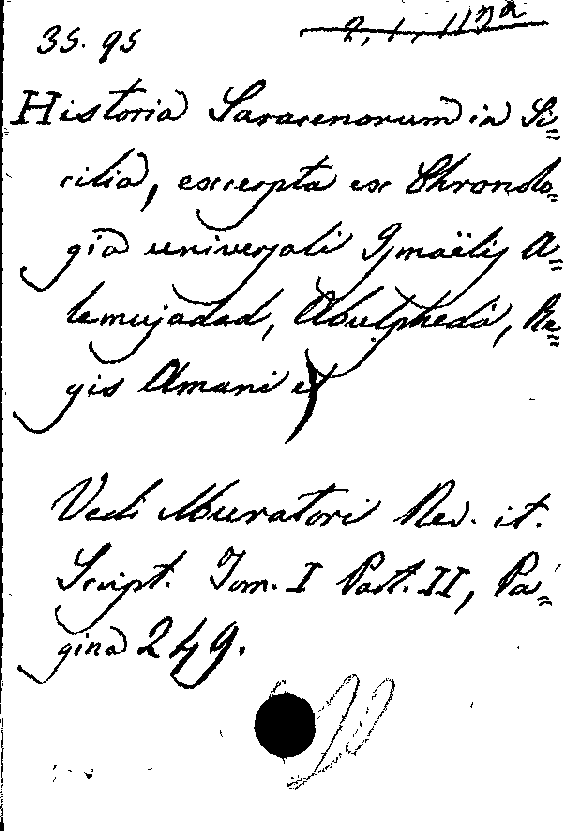 35. 95
2, 1, 113a
Historia Saracenorum in Si=
cilia, excerpta ex Chronolo=
gia universali Ismaëlis A=
lemujadad, Abulphedà, Re=
gis Amani et
Vedi Muratori Rer. it.
Script. Tom. I Part. II, Pa=
gina 249.